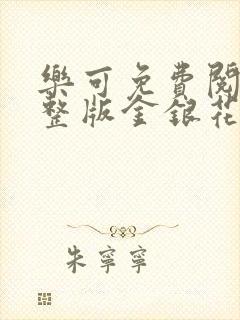 樂可免費閱
整版金銀花
朱寧寧